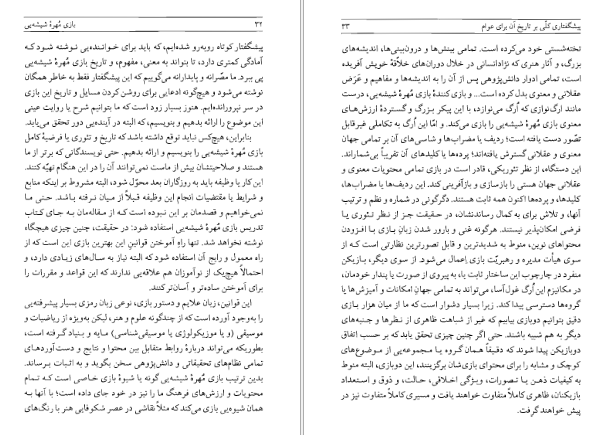 ۳۲ بازی مُهرهٔ شیشه‌یی
پیشگفتار کوتاه روبه‌رو شده‌ایم، که باید برای خواننده‌یی نوشته شود که
آمادگی کمتری دارد، تا بتواند به معنی، مفهوم، و تاریخ بازی مُهرهٔ شیشه‌یی
پی ببرد. ما مصّرانه و پایدارانه می‌گوییم که این پیشگفتار فقط به خاطر همگان
نوشته می‌شود و هیچ‌گونه ادعایی برای روشن کردن مسایل و تاریخ این بازی
در سر نپرورانده‌ایم. هنوز بسیار زود است که ما بتوانیم شرح یا روایت عینی
این موضوع را ارائه بدهیم و بنویسیم، که البته در آینده‌یی دور تحقق می‌یابد.
بنابراین، هیچ‌کس نباید توقع داشته باشد که تاریخ و تئوری یا فرضیهٔ کامل
بازی مُهرهٔ شیشه‌یی را بنویسیم و ارائه بدهیم. حتی نویسندگانی که برتر از ما
هستند و صلاحیتشان بیش از ماست نمی‌توانند آن را در این هنگام تهیّه کنند.
این کار یا وظیفه باید به روزگاران بعد محوّل شود، البته مشروط بر اینکه منابع
و شرایط یا مقتضیات انجام این وظیفه قبلاً از میان نرفته باشد. حتی ما
نمی‌خواهیم و قصدمان بر این نبوده است که از مقاله‌مان به جای کتاب
تدریس بازی مُهرهٔ شیشه‌یی استفاده شود: در حقیقت، چنین چیزی هیچگاه
نوشته نخواهد شد. تنها راهِ آموختن قوانینِ این بهترین بازی این است که از
راه معمول و رایج آن استفاده شود که البته نیاز به سال‌های زیادی دارد، و
احتمالاً هیچ‌یک از نوآموزان هم علاقه‌یی ندارند که این قواعد و مقررات را
برای آموختن ساده‌تر و آسان‌تر کنند.
این قوانین، زبان علایم و دستور بازی، نوعی زبان رمزی بسیار پیشرفته‌یی
را به‌وجود آورده است که از چندگونه علوم و هنر، لیکن به‌ویژه از ریاضیات و
موسیقی (و یا موزیکولوژی یا موسیقی‌شناسی) مایه و بنیاد گرفته است،
بطوریکه می‌تواند دربارهٔ روابط متقابل بین محتوا و نتایج و دست‌آوردهای
تمامی نظام‌های تحقیقاتی و دانش‌پژوهی سخن بگوید و به اثبات برساند.
بدین ترتیب بازی مُهرهٔ شیشه‌یی گونه یا شیوهٔ بازی خاصی است که تمام
محتویات و ارزش‌های فرهنگ ما را تیز در خود جای داده است؛ با آنها به
همان شیوه‌یی بازی می‌کند که مثلاً نقاشی در عصر شکوفایی هنر با رنگ‌های
پیشگفتاری کلّی بر تاریخ آن برای عوام ۳۳
تخته‌شستی خود می‌کرده است. تمامی بینش‌ها و درون‌بینی‌ها، اندیشه‌های
بزرگ، و آثار هنری که نژادانسانی در خلال دوران‌های خلاّقهٔ خویش آفریده
است، تمامی ادوار دانش‌پژوهی پس از آن را به اندیشه‌ها و مفاهیم و عَرَض
معنوی و عقلانی بدل کرده است... و بازی کنندهٔ بازی مُهرهٔ شیشه‌یی، درست
مانند ارگ‌نوازی که اُرگ می‌نوازد، با این پیکر بزرگ و گستردهٔ ارزش‌های
معنوی بازی مُهرهٔ شیشه‌یی را بازی می‌کند. و امّا این اُرگ به تکاملی غیرقابل
تصوّر دست یافته است؛ ردیف یا مضراب‌ها و شاسی‌های آن بر تمامی جهان
معنوی و عقلانی گسترش یافته‌اند؛ پرده‌ها یا کلیدهای آن تقریباً بی‌شمارند.
این دستگاه، از نظر تئوریکی، قادر است در بازی تمامی محتویات معنوی و
عقلانی جهان هستی را بازسازی و بازآفرینی کند. این ردیف‌ها یا مضراب‌ها،
کلیدها، و پرده‌ها اکنون همه ثابت هستند. دگرگونی در شماره و نظم و ترتیب
آنها، و تلاش برای به کمال رساندنشان، در حقیقت جز از نظر تئوری یا
فرضی امکان‌پذیر نیستند. هرگونه غنی و بارور شدن زبانِ بازی با افزودن
محتواهای نوین، منوط به شدیدترین و قابل تصورترین نظارتی است که از
سوی هیأت مدیره و رهبریّت بازی اِعمال می‌شود. از سوی دیگر، بازیکن
منفرد در چارچوب این ساختار ثابت یا، به پیروی از صورت یا پندار خودمان،
در مکانیزم این اُرگ غول‌آسا، می‌تواند به تمامی جهانِ امکانات و آمیزش‌ها یا
گروه‌ها دسترسی پیدا کند. زیرا بسیار دشوار است که ما از میان هزار بازی
دقیق بتوانیم دوبازی بیابیم که غیر از شباهت ظاهری از نظرها و جنبه‌های
دیگر به هم شبیه باشند. حتی اگر چنین چیزی تحقق یابد که بر حسب اتفاق
دوبازیکن پیدا شوند که دقیقاً همان گروه یا مجموعه‌یی از موضوع‌های
کوچک و مشابه را برای محتوای بازی‌شان برگزینند، این دوبازی، البته منوط
به کیفیات ذهن یا تصورات، ویژگی اخلاقی، حالت، و ذوق و استعداد
بازیکنان، ظاهری کاملاً متفاوت خواهند یافت و مسیری کاملاً متفاوت نیز در
پیش خواهند گرفت.